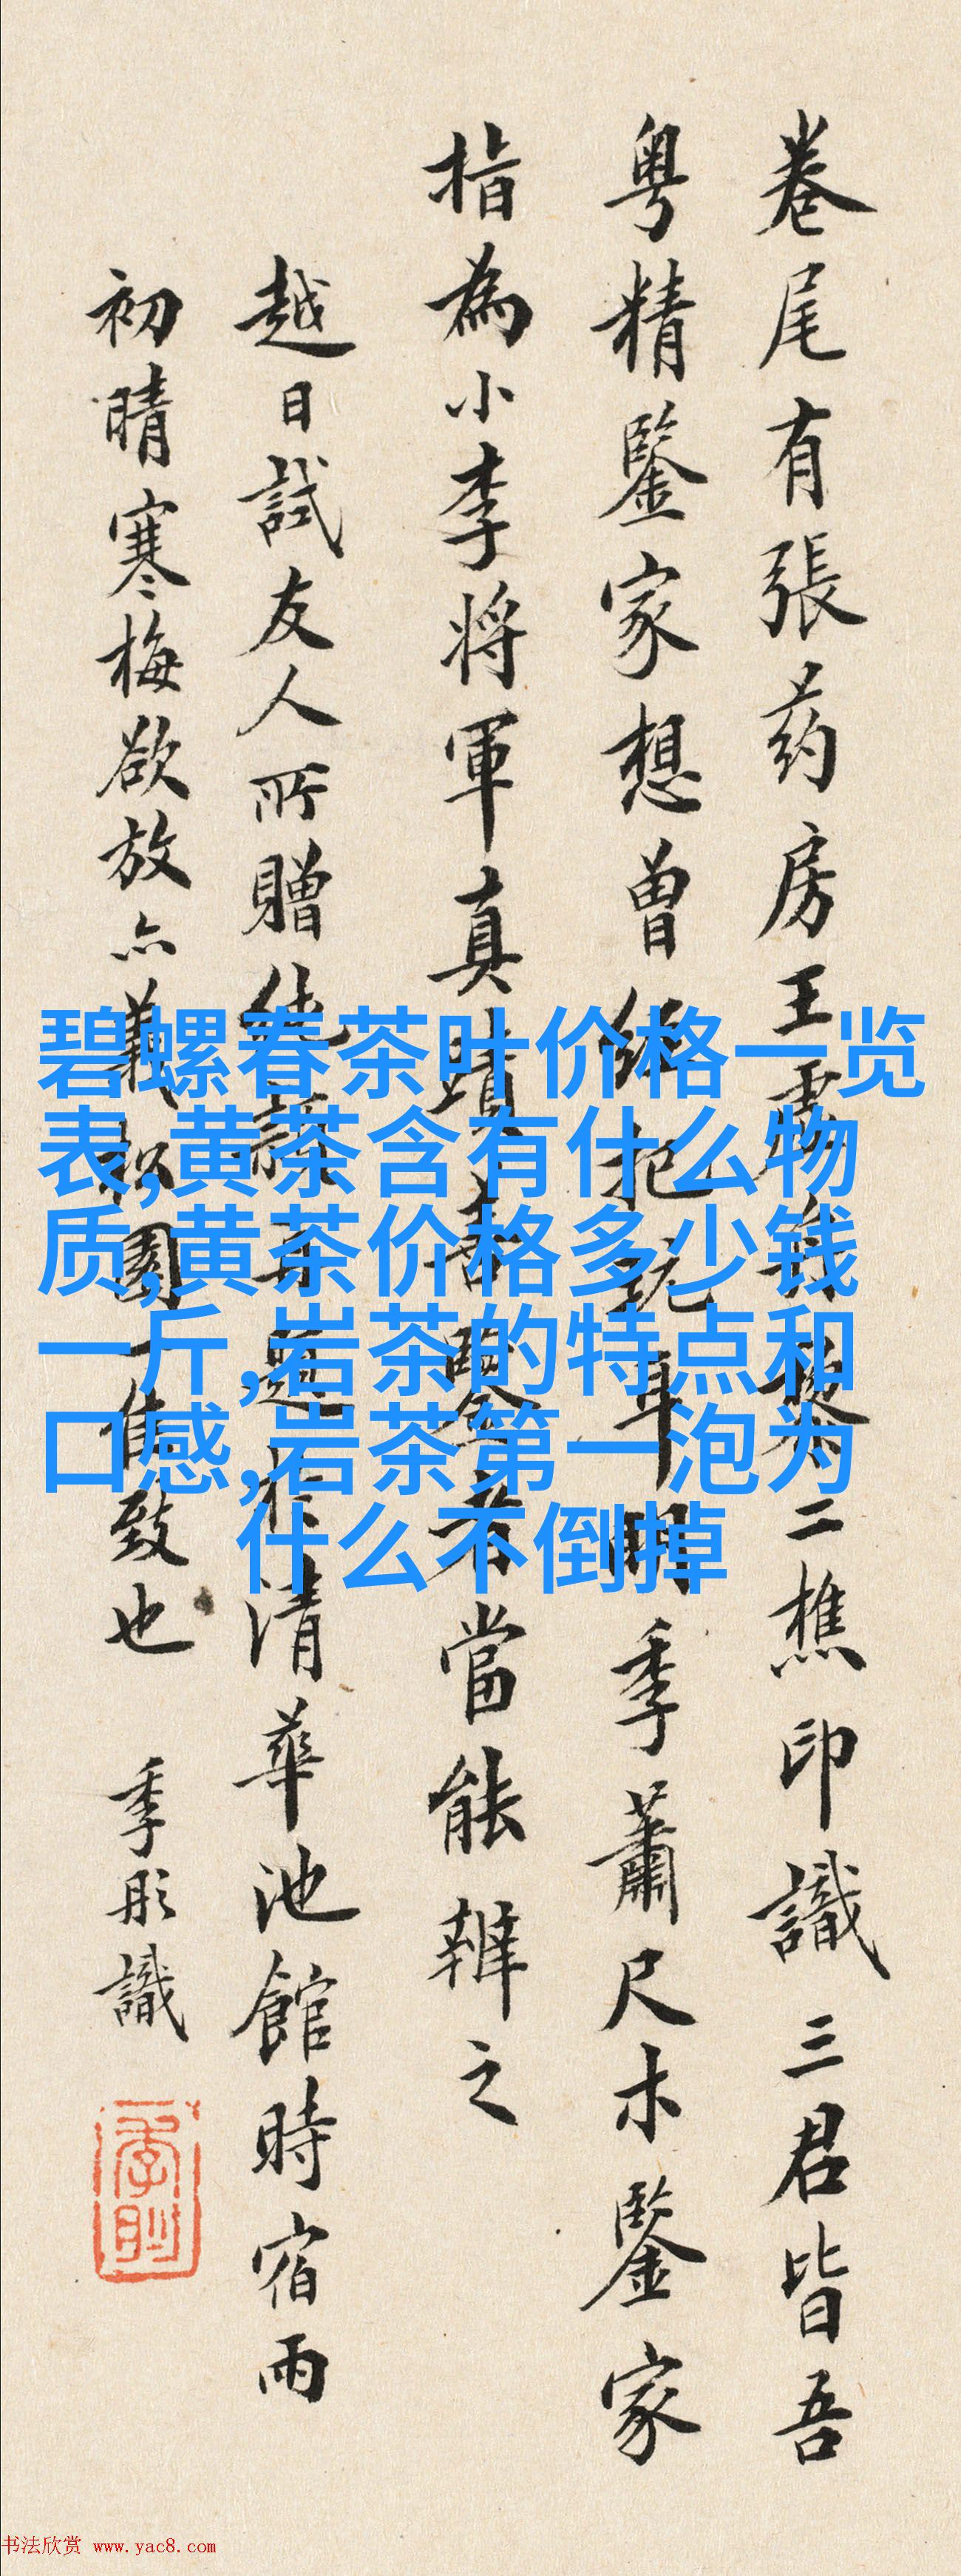 卷尾有張药房王
二樵印識三君皆吾
粤精鑒家想曾經把玩耳明季蕭尺木鑒家
指為小李將軍真蹟喜鑒者當能辨之
越日試友人所贈
清華池館時宿雨
初晴寒梅欲放亦
園一佳致也
季彤識
碧螺春茶叶价格一览
表,黄茶含有什么物
质,黄茶价格多少钱
一斤,岩茶的特点和
口感,岩茶第一泡为
什么不倒掉
书法欣赏 www.yac8.com